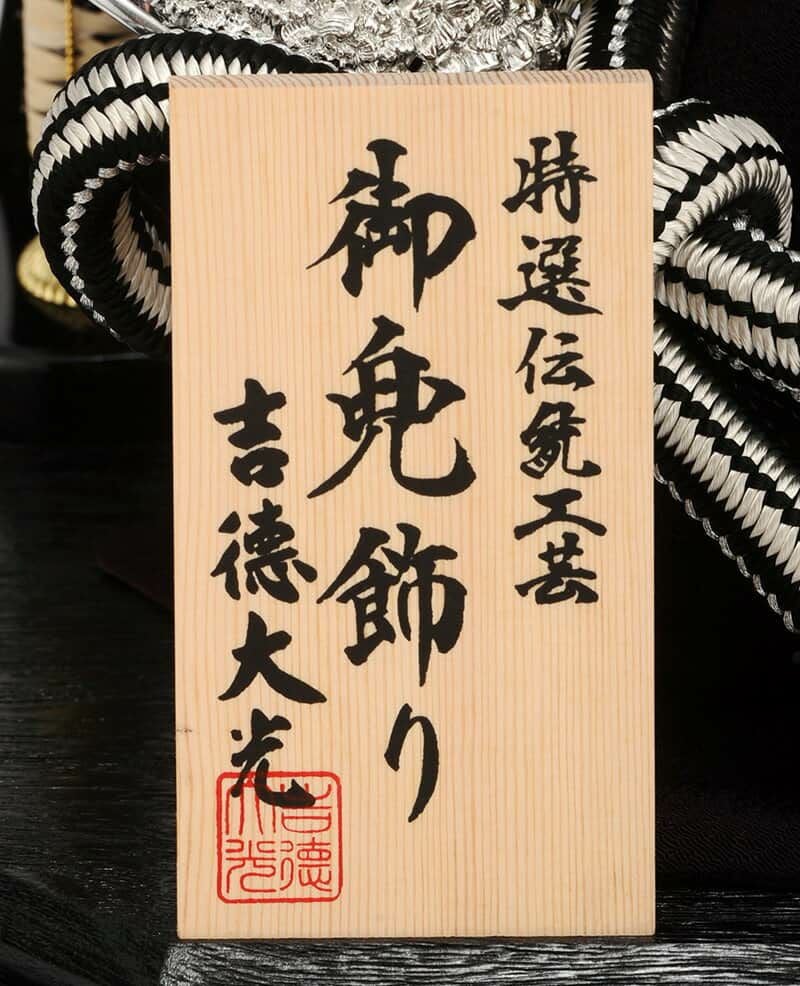 特選伝統工芸
御免飾り
吉德大光
吉德大光